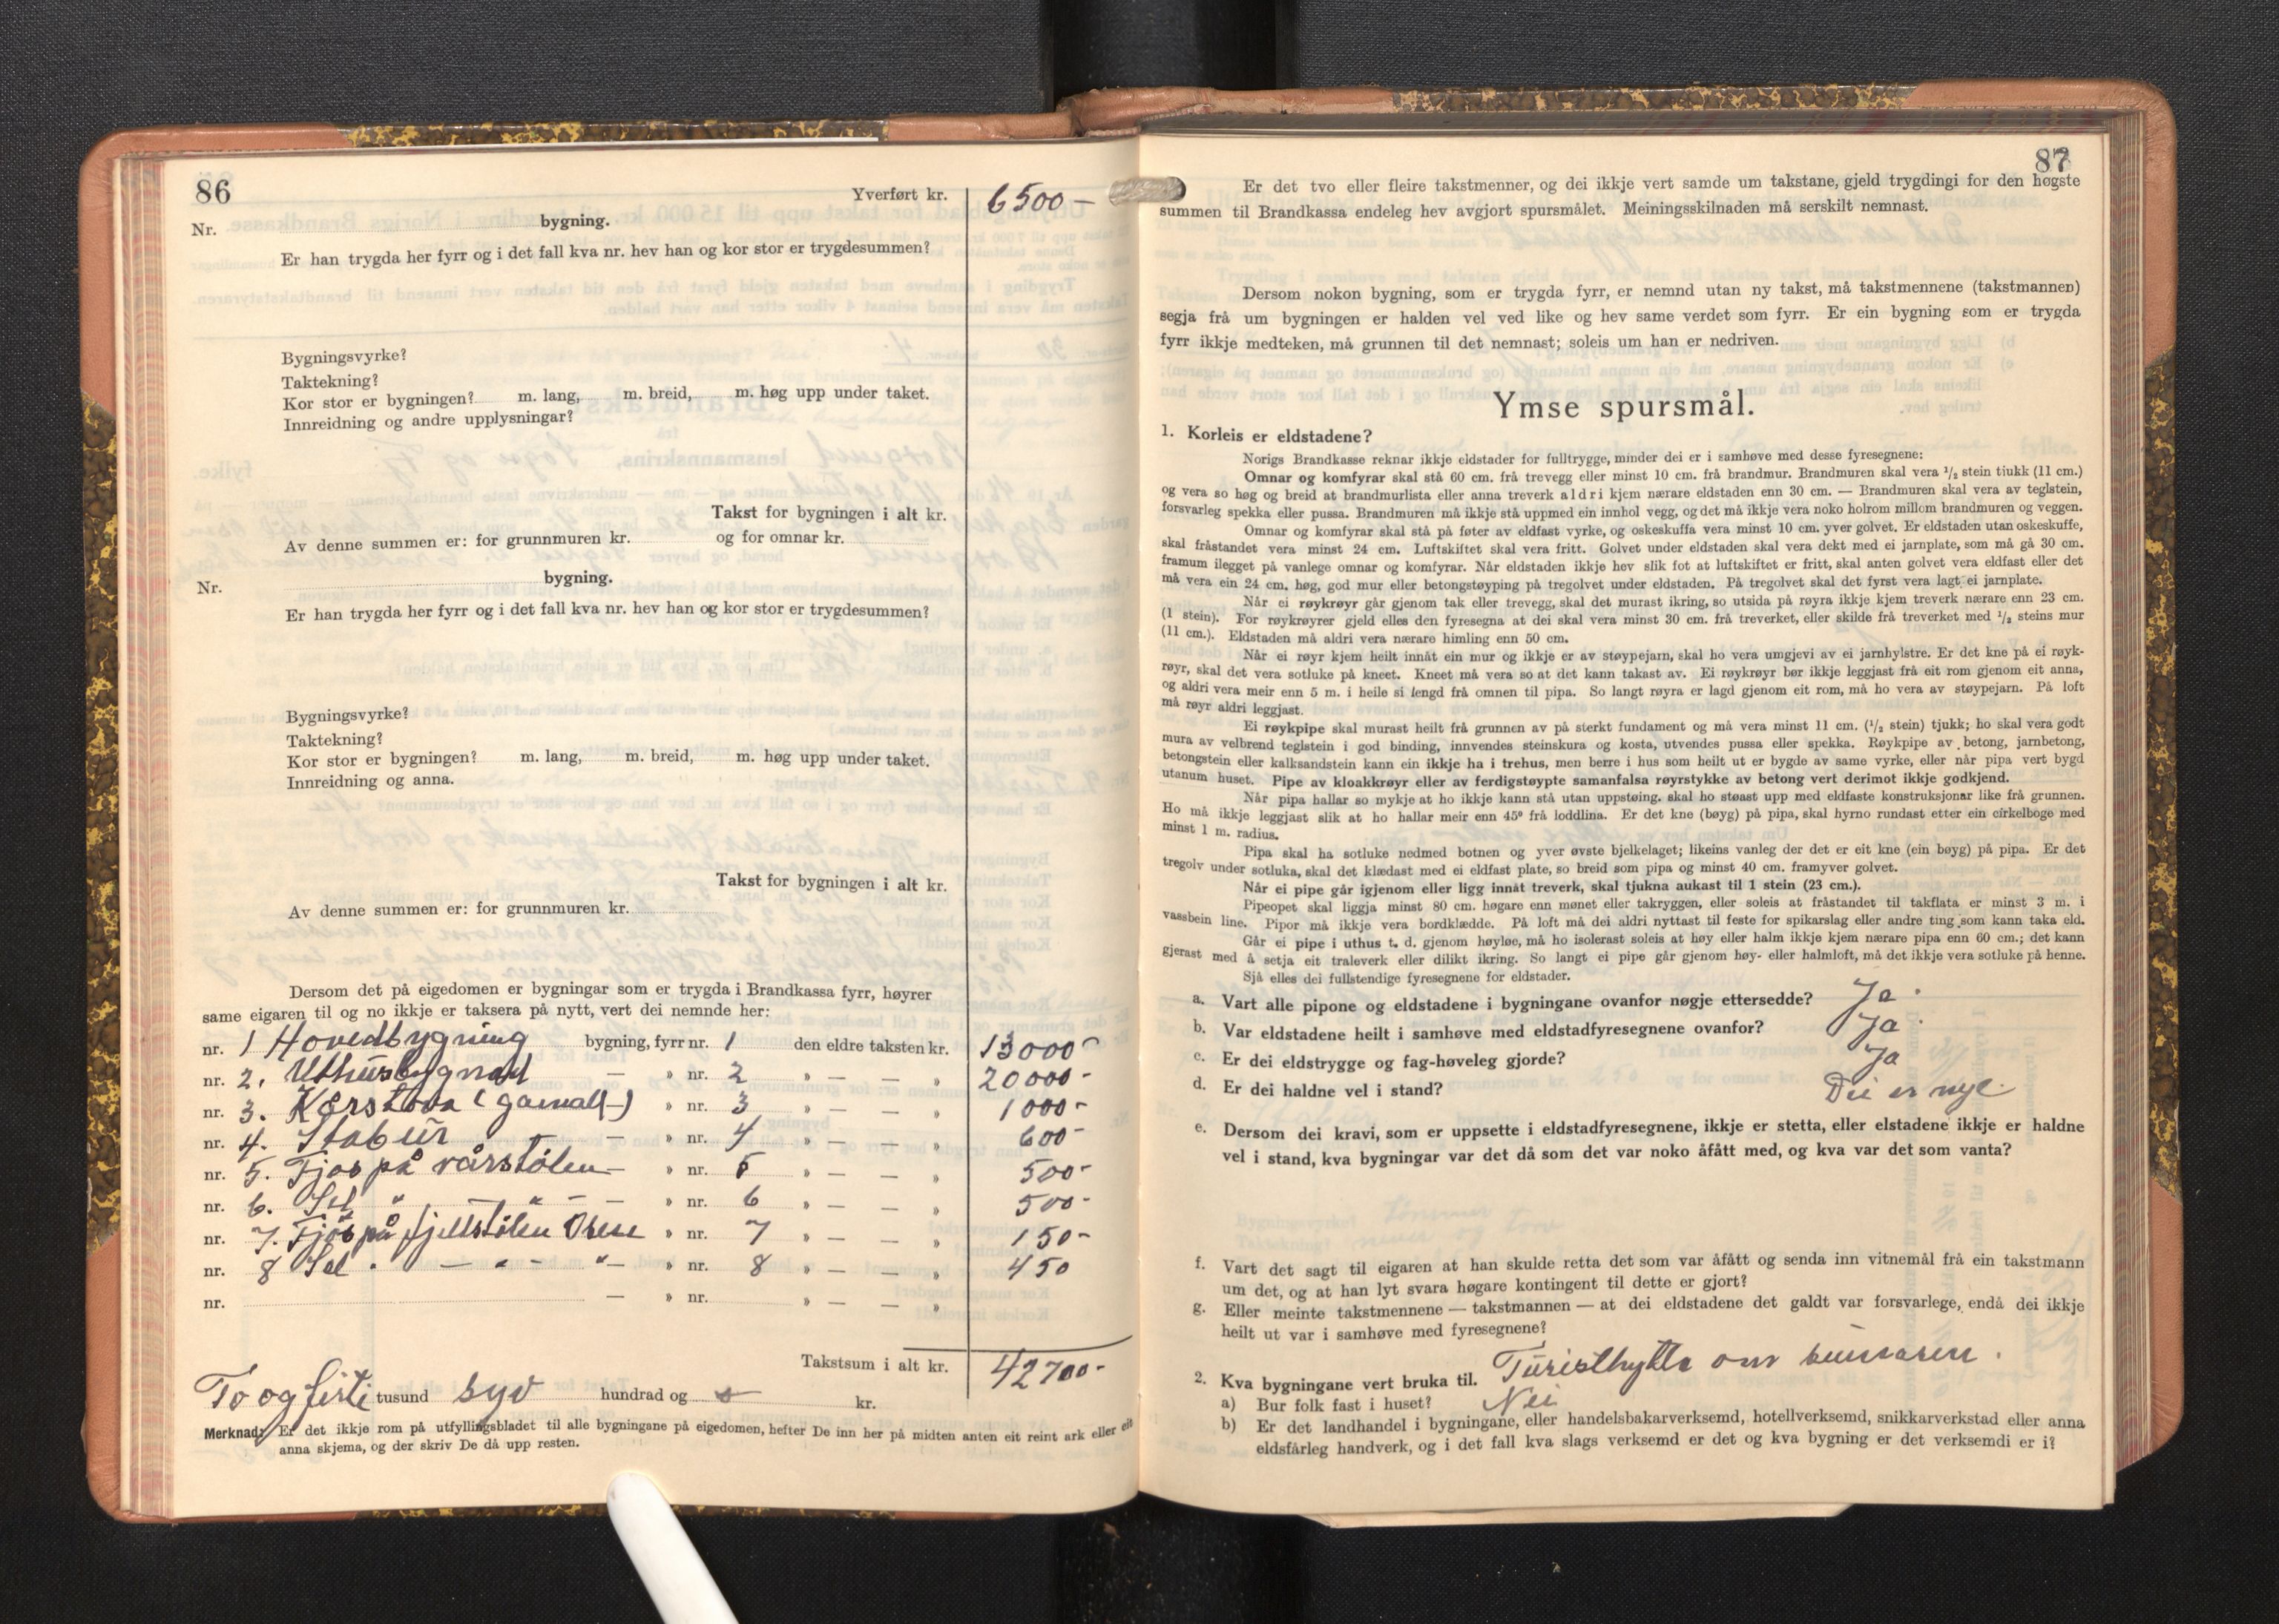 86
Yverført kr. 6500 –
Nr. bygning.
Er han trygda her fyrr og i det fall kva nr. hev han og kor stor er trygdesummen?
Bygningsvyrke?
Taktekning?
Kor stor er bygningen? m. lang, m. breid, m. høg upp under taket.
Innreidning og andre upplysningar?
Takst for bygningen i alt kr.
Av denne summen er: for grunnmuren kr. og for omnar kr.
Nr. bygning.
Er han trygda her fyrr og i det fall kva nr. hev han og kor stor er trygdesummen?
Bygningsvyrke?
Taktekning?
Kor stor er bygningen? m. lang, m. breid, m. høg upp under taket.
Innreidning og anna.
Takst for bygningen i alt kr.
Av denne summen er: for grunnmuren kr.
Dersom det på eigedomen er bygningar som er trygda i Brandkassa fyrr, høyrer
same eigaren til og no ikkje er taksera på nytt, vert dei nemnde her:
nr. 1 Hovedbygning bygning, fyrr nr. 1 den eldre taksten kr. 13000 -
nr. 2. Uthusbygnad — » nr. 2 » — — » 20000 -
nr. 3. Kårstova (gamall-) » nr. 3 » — — » 1000 -
nr. 4. Stabur — » nr. 4 » — — » 600 -
nr. 5. Fjos på vårstölen — » nr. 5 » — — » 500 -
nr. 6. Sel " — " — — » nr. 6 » — — » 500 -
nr. 7. Fjös på fjellstölen » nr. 7 » — — » 150 -
nr. 8 Sel " — " - " — » nr. 8 » — — » 450
nr. — » nr. » — — »
Takstsum i alt kr. 42700 -
To og firti tusund syv hundrad og kr.
Merknad: Er det ikkje rom på utfyllingsbladet til alle bygningane på eigedomen, hefter De inn her på midten anten eit reint ark eller eit
anna skjema, og der skriv De då upp resten.
87
Er det tvo eller fleire takstmenner, og dei ikkje vert samde um takstane, gjeld trygdingi for den høgste
summen til Brandkassa endeleg hev avgjort spursmålet. Meiningsskilnaden må serskilt nemnast.
Dersom nokon bygning, som er trygda fyrr, er nemnd utan ny takst, må takstmennene (takstmannen)
segja frå um bygningen er halden vel ved like og hev same verdet som fyrr. Er ein bygning som er trygda
fyrr ikkje medteken, må grunnen til det nemnast; soleis um han er nedriven.
Ymse spursmål.
1. Korleis er eldstadene?
Norigs Brandkasse reknar ikkje eldstader for fulltrygge, minder dei er i samhøve med desse fyresegnene:
Omnar og komfyrar skal stå 60 cm. frå trevegg eller minst 10 cm. frå brandmur. Brandmuren skal vera ½ stein tjukk (11 cm.)
og vera so høg og breid at brandmurlista eller anna treverk aldri kjem nærare eldstaden enn 30 cm. — Brandmuren skal vera av teglstein,
forsvarleg spekka eller pussa. Brandmuren må ikkje stå uppmed ein innhol vegg, og det må ikkje vera noko holrom millom brandmuren og veggen.
Omnar og komfyrar skal stå på føter av eldfast vyrke, og oskeskuffa vera minst 10 cm. yver golvet. Er eldstaden utan oskeskuffe,
skal fråstandet vera minst 24 cm. Luftskiftet skal vera fritt. Golvet under eldstaden skal vera dekt med ei jarnplate, som må gå 30 cm.
framum ilegget på vanlege omnar og komfyrar. Når eldstaden ikkje hev slik fot at luftskiftet er fritt, skal anten golvet vera eldfast eller det
må vera ein 24 cm. høg, god mur eller betongstøyping på tregolvet under eldstaden. På tregolvet skal det fyrst vera lagt ei jarnplate.
Når ei røykrøyr går gjenom tak eller trevegg, skal det murast ikring, so utsida på røyra ikkje kjem treverk nærare enn 23 cm.
(1 stein). For røykrøyrer gjeld elles den fyresegna at dei skal vera minst 30 cm. frå treverket, eller skilde frå treverket med ½ steins mur
(11 cm.). Eldstaden må aldri vera nærare himling enn 50 cm.
Når ei røyr kjem heilt innåt ein mur og ikkje er av støypejarn, skal ho vera umgjevi av ei jarnhylstre. Er det kne på ei røyk-
røyr, skal det vera sotluke på kneet. Kneet må vera so at det kann takast av. Ei røykrøyr bør ikkje leggjast frå eit rom gjenom eit anna,
og aldri vera meir enn 5 m. i heile si lengd frå omnen til pipa. So langt røyra er lagd gjenom eit rom, må ho vera av støypejarn. På loft
må røyr aldri leggjast.
Ei røykpipe skal murast heilt frå grunnen av på sterkt fundament og må vera minst 11 cm. (½ stein) tjukk; ho skal vera godt
mura av velbrend teglstein i god binding, innvendes steinskura og kosta, utvendes pussa eller spekka. Røykpipe av betong, jarnbetong,
betongstein eller kalksandstein kann ein ikkje ha i trehus, men berre i hus som heilt ut er bygde av same vyrke, eller når pipa vert bygd
utanum huset. Pipe av kloakkrøyr eller av ferdigstøypte samanfalsa røyrstykke av betong vert derimot ikkje godkjend.
Når pipa hallar so mykje at ho ikkje kann stå utan uppstøing. skal ho støast upp med eldfaste konstruksjonar like frå grunnen.
Ho må ikkje leggjast slik at ho hallar meir enn 45° frå loddlina. Er det kne (bøyg) på pipa, skal hyrno rundast etter ein cirkelboge med
minst 1 m. radius.
Pipa skal ha sotluke nedmed botnen og yver øvste bjelkelaget; likeins vanleg der det er eit kne (ein bøyg) på pipa. Er det
tregolv under sotluka, skal det klædast med ei eldfast plate, so breid som pipa og minst 40 cm. framyver golvet.
Når ei pipe går igjenom eller ligg innåt treverk, skal tjukna aukast til 1 stein (23 cm.).
Pipeopet skal liggja minst 80 cm. høgare enn mønet eller takryggen, eller soleis at fråstandet til takflata er minst 3 m. i
vassbein line. Pipor må ikkje vera bordklædde. På loft må dei aldri nyttast til feste for spikarslag eller andre ting som kann taka eld.
Går ei pipe i uthus t. d. gjenom høyløe, må ho isolerast soleis at høy eller halm ikkje kjem nærare pipa enn 60 cm.; det kann
gjerast med å setja eit traleverk eller dilikt ikring. So langt ei pipe går gjenom høy- eller halmloft, må det ikkje vera sotluke på henne.
Sjå elles dei fullstendige fyresegnene for eldstader.
a. Vart alle pipone og eldstadene i bygningane ovanfor nøgje ettersedde? Ja.
b. Var eldstadene heilt i samhøve med eldstadfyresegnene ovanfor? Ja.
c. Er dei eldstrygge og fag-høveleg gjorde? Ja
d. Er dei haldne vel i stand? Dei er nye.
e. Dersom dei kravi, som er uppsette i eldstadfyresegnene, ikkje er stetta, eller elstadene ikkje er haldne
vel i stand, kva bygningar var det då som det var noko åfått med, og kva var det som vanta?
f. Vart det sagt til eigaren at han skulde retta det som var åfått og senda inn vitnemål frå ein takstmann
um det, og at han lyt svara høgare kontingent til dette er gjort?
g. Eller meinte takstmennene — takstmannen — at dei eldstadene det galdt var forsvarlege, endå dei ikkje
heilt ut var i samhøve med fyresegnene?
2. Kva bygningane vert bruka til. Turisthytta om sumaren.
a) Bur folk fast i huset? Nei
b) Er det landhandel i bygningane, eller handelsbakarverksemd, hotellverksemd, snikkarverkstad eller anna
eldsfårleg handverk, og i det fall kva slags verksemd er det og kva bygning er det verksemdi er i?